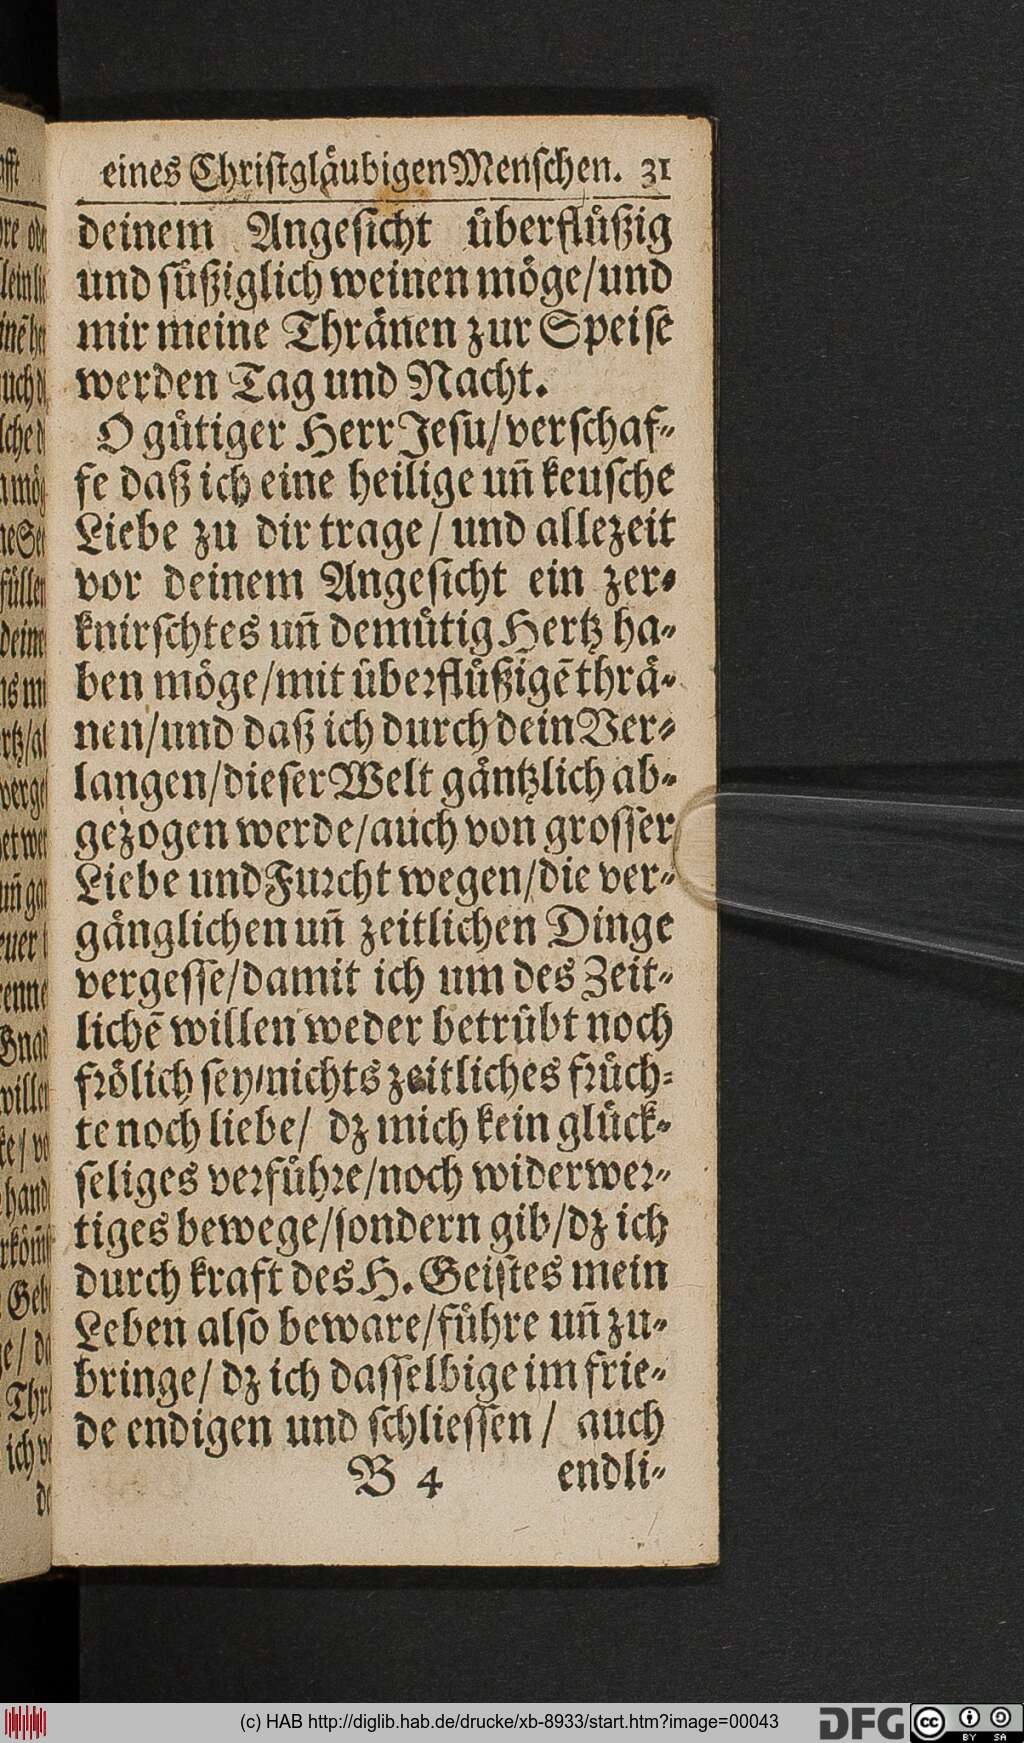 eines Christgläubigen Menschen. 31
deinem Angesicht überflüßig
und süßiglich weinen möge/und
mir meine Thränen zur Speise
werden Tag und Nacht.
O gütiger Herr Jesu/verschaf-
fe daß ich eine heilige uñ keusche
Liebe zu dir trage/ und allezeit
vor deinem Angesicht ein zer-
knirschtes uñ demütig Hertz ha-
ben möge/mit überflüßigẽ thrä-
nen/und daß ich durch dein Ver-
langen/dieser Welt gäntzlich ab-
gezogen werde/auch von grosser
Liebe und Furcht wegen/die ver-
gänglichen uñ zeitlichen Dinge
vergesse/damit ich um des Zeit-
lichẽ willen weder betrübt noch
frölich sey/nichts zeitliches früch-
te noch liebe/ dz mich kein glück-
seliges verführe/noch widerwer-
tiges bewege/sondern gib/dz ich
durch kraft des H. Geistes mein
Leben also beware/führe uñ zu-
bringe/ dz ich dasselbige im frie-
de endigen und schliessen/ auch
B 4 endli-
(c) HAB http://diglib.hab.de/drucke/xb-8933/start.htm?image=00043
DFG
cc
BY SA